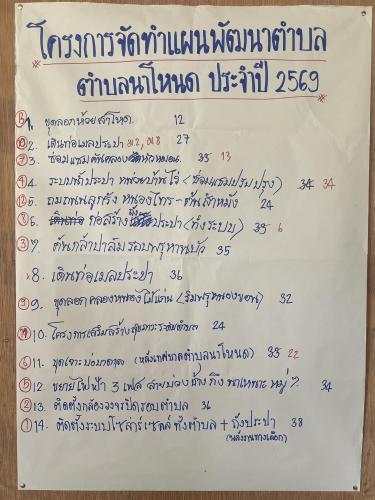 โครงการจัดทำแผนพัฒนาตำบล
ตำบลนาโหนด ประจำปี 2569
1. ขุดลอกห้วย 12
⑩ 2. เดินท่อเมลประปา ม.2, ม.8 27
3. ซ่อมแซม 35 13
④ 4. ระบบน้ำประปา หน่วยบ้านไร่ (ซ่อมแซมปรับปรุง) 34 34
5. ถมถนนลูกรัง หนองไทร - 24
6. ก่อสร้าง ประปา (ทั้งระบบ) 33 6
③ 7. ต้นกล้าปาล์ม รอบพรุ 35
8. เดินท่อเมลประปา 36
9. ขุดลอกคลองหนองไม้แก่น (ริมพรุหนองขอน) 32
10. โครงการเสริมสร้างสุขภาวะระดับตำบล 24
⑥ 11. ขุดเจาะบ่อบาดาล (หลังเทศบาลตำบลนาโหนด) 35 22
⑤ 12. ขยายไฟฟ้า 3 เฟส สายบ่วงช้าง ถึง หมู่ 7. 34
② 13. ติดตั้งกล้องวงจรปิดรอบตำบล 36
① 14. ติดตั้งระบบโซล่าร์เซลล์ทั้งตำบล + ถังประปา 38
(พลังงานทางเลือก)